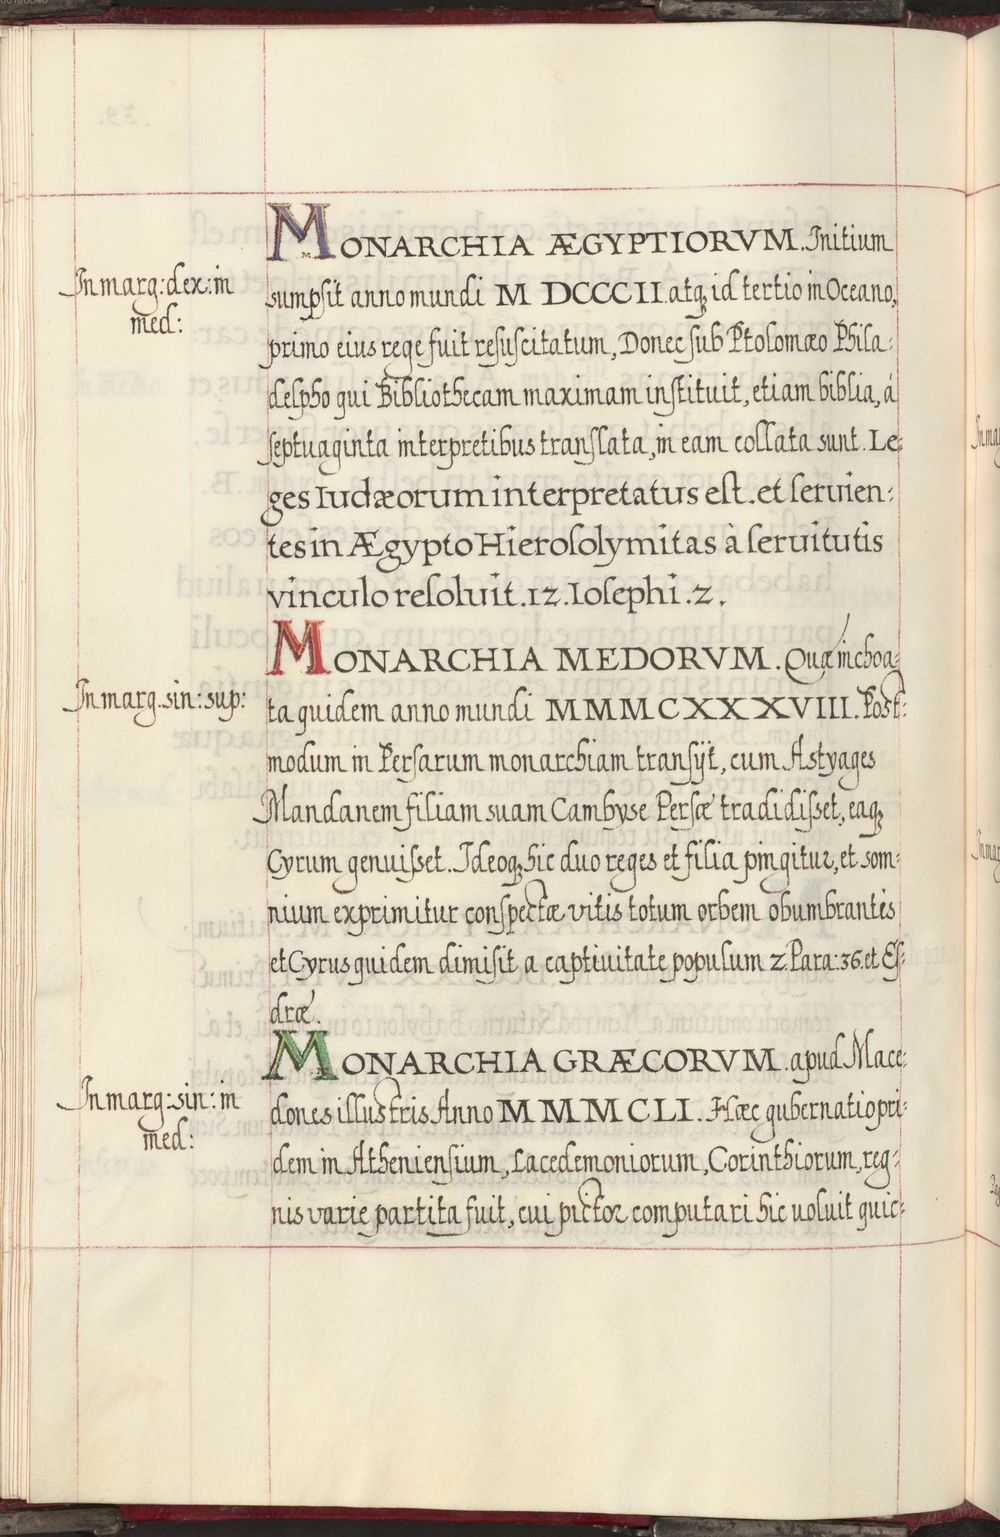 MONARCHIA ÆGYPTIORVM. Initium
In marg: dex: in
med:
sumpsit anno mundi M DCCCII. atq; id tertio in Oceano,
primo eius rege fuit resuscitatum, Donec sub Ptolomæo Phila-
delpho qui Bibliothecam maximam instituit, etiam biblia, á
septuaginta interpretibus translata, in eam collata sunt. Le-
ges Iudæorum interpretatus est. et seruien-
tes in Ægypto Hierosolymitas à seruitutis
vinculo resoluit. 12. Iosephi. 2.
MONARCHIA MEDORVM. Quæ inchoa-
In marg. sin: sup:
ta quidem anno mundi MMMCXXXVIII. Post-
modum in Persarum monarchiam transÿt, cum Astyages
Mandanem filiam suam Cambyse Persæ tradidisset, eaq;
Cyrum genuisset. Ideoq; hic duo reges et filia pingitur, et som-
nium exprimitur conspectæ vitis totum orbem obumbrantis
et Cyrus quidem dimisit a captiuitate populum 2. Para: 36. et Es-
dræ.
MONARCHIA GRÆCORVM. apud Mace-
In marg: sin: in
med:
dones illustris Anno MMMCLI. Hæc gubernatio pri-
dem in Atheniensium, Lacedemoniorum, Corinthiorum, reg-
nis varie partita fuit, cui pictor computari hic uoluit quic-